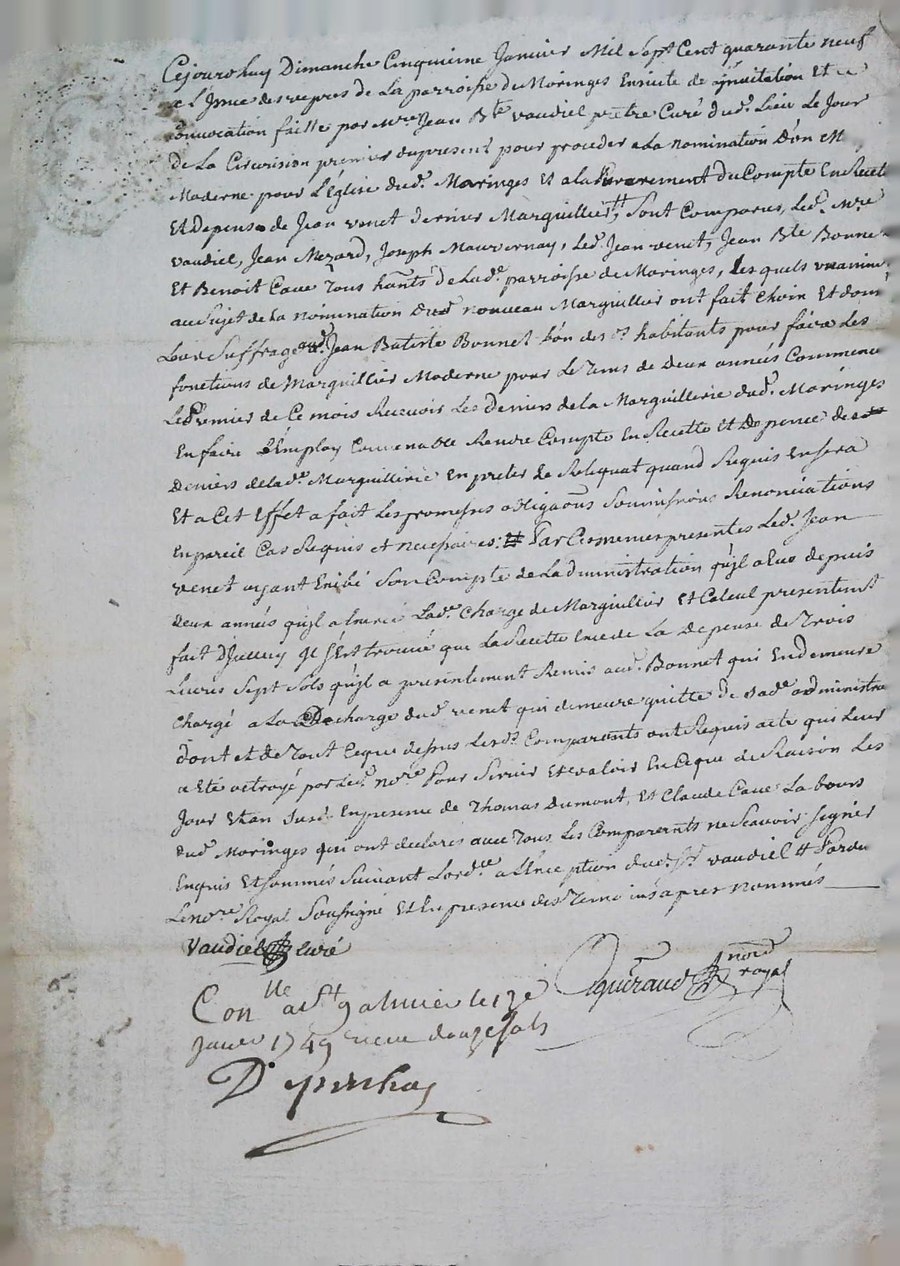 Cejourdhuy Dimanche Cinquieme Janvier Mil Sept Cent quarante neuf
a L'Jssue des vepres de La parroisse de Moringes Ensuite de Jnvitation Et
Convocation faitte par Mre Jean Bte vaudiel pretre Curé dud. Lieu Le Jour
de La Circoncision premier du present pour proceder a La nomination D'un M
Moderne pour L'Eglise dud. Maringes Et a la du Compte En Recette
Et Depense de Jean venet dernier Marguillier, Sont Comparus, Led. Mre
vaudiel, Jean Mezard, Joseph Mauvernay, Led. Jean venet, Jean Bte Bonne
Et Benoit Cave Tous hants de Lade. parroisse de Maringes, Lesquels unanime
au Sujet de La nomination dud. nouveau Marguillier ont fait choix Et donn
Leur Suffrage aud. Jean Batiste Bonnet L'un des ds habitants pour faire Les
fonctions de Marguillier Moderne pour Le Tems de Deux années Commence
Le Premier de Ce mois Recevoir Les Deniers de La Marguillerie dud. Maringes
En faire L'Employ Convenable Rendre Compte En Recette Et Depence des
Deniers de Lade. Marguillerie En preter Le Reliquat quand Requis En Sera
Et a Cet Effet a fait Les promesses obligaons Soumissions Renonciations
En pareil Cas Requis et necessaires: # Par Cesmemes presentes Led. Jean
venet ayant Exibé Son Compte de Ladministration qu'jl a Eue depuis
Deux années qu'jl a Lade. Charge de Marguillier Et Calcul presentemt
fait D'jcelluy Jl S'Est trouvé que La Recette Excede La Depense de Trois
Livres Sept Sols qu'jl a presentement Remis aud. Bonnet qui En demeure
Chargé a La Decharge dud. venet qui demeure quitte de Sade. administra
dont et de Tout Ceque dessus Lesds. Comparants ont Requis acte qui Leur
a Eté octroyé par Led. nore. Pour Servir Et valoir En Ceque de Raison Les
Jour Et an Susd. En presence de Thomas Dumont, Et Claude Cave Labours
dud. Maringes qui ont declaré avec Tous Les Comparants ne Scavoir Signer
Enquis Et Sommés Suivant Lordce. a L'Exception dud. Sr. vaudiel # Pardt
Le nore. Royal Soussigné Et En presence des Temoins apres nommés
Vaudiel Curé
Guiraud nore royal
Conlle a St galmier le 17e
janer 1749 recu douze sols